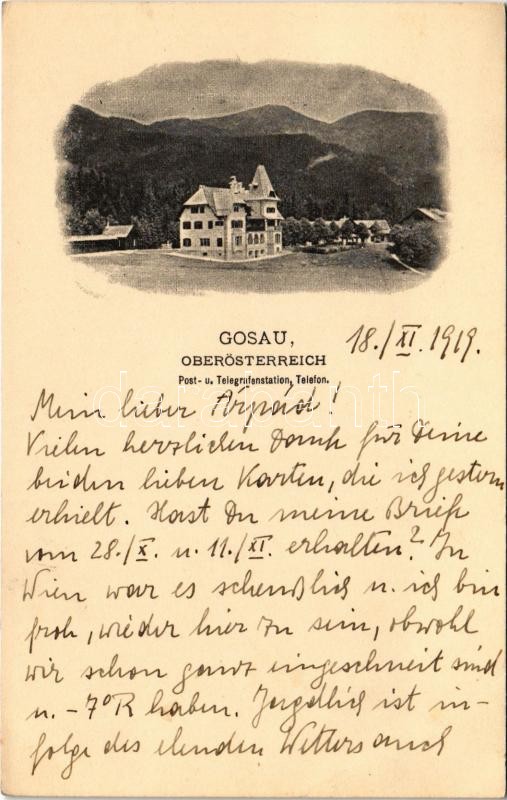 GOSAU,
OBERÖSTERREICH
Post- u. Telegrafenstation, Telefon.
18./XI. 1919.
Mein lieber Árpád!
Vielen herzlichen Dank für Deine
beiden lieben Karten, die ich gestern
erhielt. Hast Du meine Briefe
vom 28./X. u. 11./XI. erhalten? In
Wien war es scheußlich u. ich bin
froh, wieder hier zu sein, obwohl
wir schon ganz eingeschneit sind
u. -7°R haben. Jagdlich ist in-
folge des elenden Wetters auch
darabanth